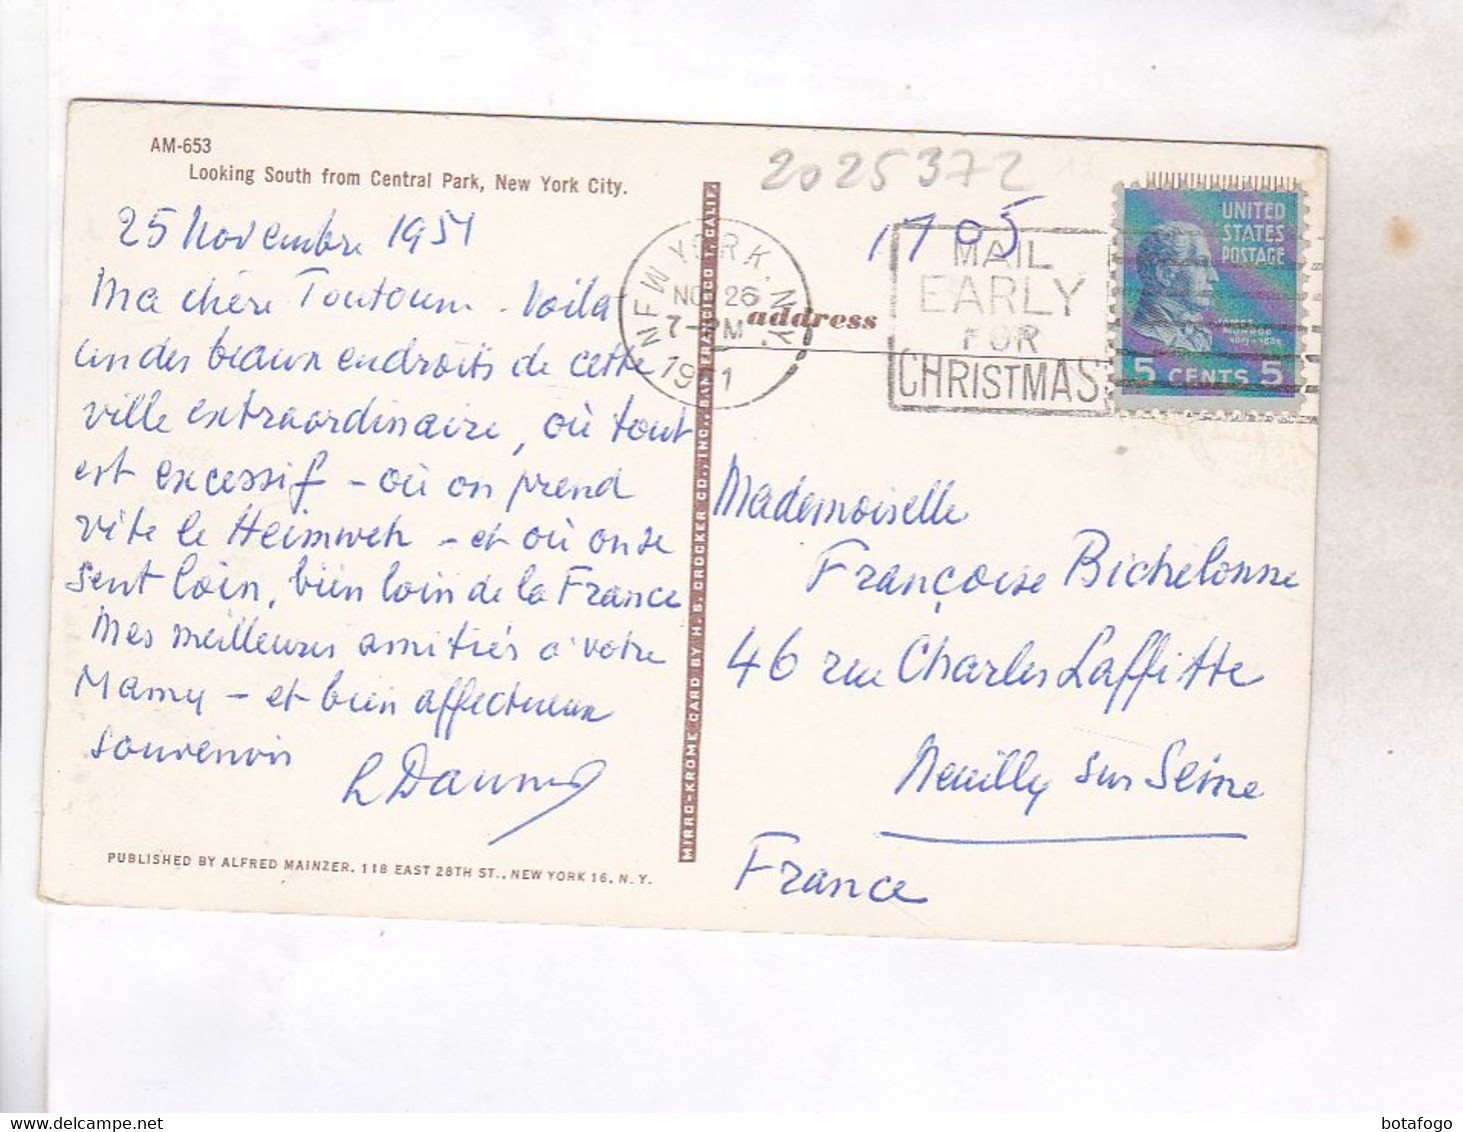 AM-653
Looking South from Central Park, New York City.
25 Novembre 1951
Ma chère Toutoum - Voilà
un des beaux endroits de cette
ville extraordinaire, où tout
est excessif - où on prend
vite le Heimweh - et où on se
sent loin, bien loin de la France
Mes meilleures amitiés à votre
Mamy - et bien affectueux
souvenir
PUBLISHED BY ALFRED MAINZER, 118 EAST 28TH ST., NEW YORK 16, N. Y.
MIRRO-KROME CARD BY H. S. CROCKER CO., INC., SAN FRANCISCO 1, CALIF.
2025372
1705
NEW YORK, N.Y.
NO 26
7-PM
1951
address
MAIL
EARLY
FOR
CHRISTMAS
UNITED
STATES
POSTAGE
JAMES
MONROE
5 CENTS 5
Mademoiselle
Françoise Bichelonne
46 rue Charles Laffitte
Neuilly sur Seine
France
botafogo